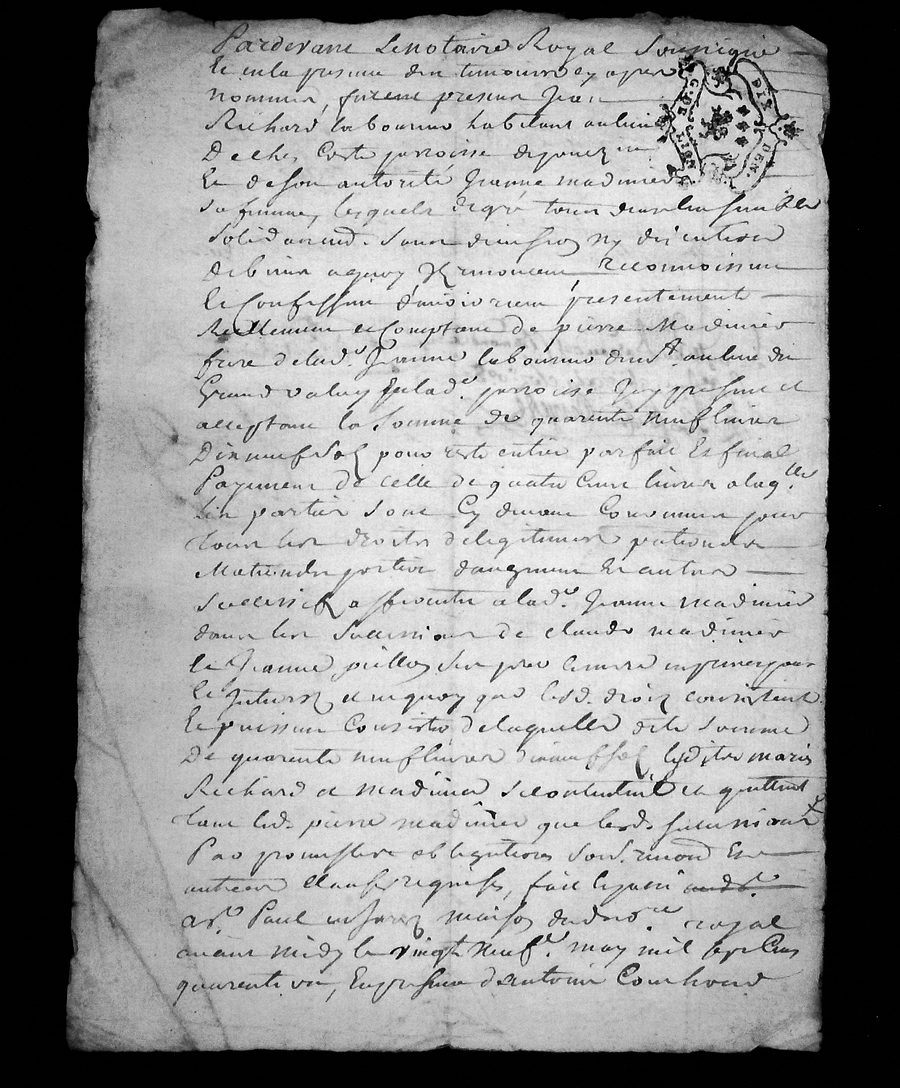 Pardevant Lenotaire Royal Soussigné
Et en la presence des temoins cy apres
nommés, furent presens Jean
Richard laboureur habitant au lieu
De ches Coste parroisse de
Et de son autorité Jeanne madinier
sa femme, lesquels de gré tous deux ensemble
solidairement sans division ny discution
de biens a quoy ils renoncent reconnoissent
Et Confessent d'avoir receu presentement
Reellement et Comptant de pierre Madinier
frere de lad.e Jeanne laboureur dem.t au lieu du
Grand valuy susd. parroisse Icy present et
acceptant la somme de quarente neuf livres
Dix neuf sols pour reste entier parfait Et final
Payement de celle de quatre Cens livres a laq.lle
les parties sont Cy devant Convenues pour
tous les droits de legitimes paternelle
Maternelle portion d'augment Et autres
successifs afferents a lad.e Jeanne madinier
dans les successions de claude madinier
et Jeanne ses pere et mere
et interets et en quoy que lesd. droits consistent
Et puissent Consister de laquelle dite somme
De quarente neuf livres dix neuf sols, lesdites mariés
Richard et madinier se contentent et quittent
tant led. pierre madinier que lesd. successions
Par promesse obligations soud. renon. Et
autres clauses requises, fait et passé
a S.t Paul en Jarez maison dud. no.re royal
avant midy le vingt neuf.e may mil sept Cens
quarente un, En presence d'Antoine Couchoud
G. DE LION
DIX DEN.